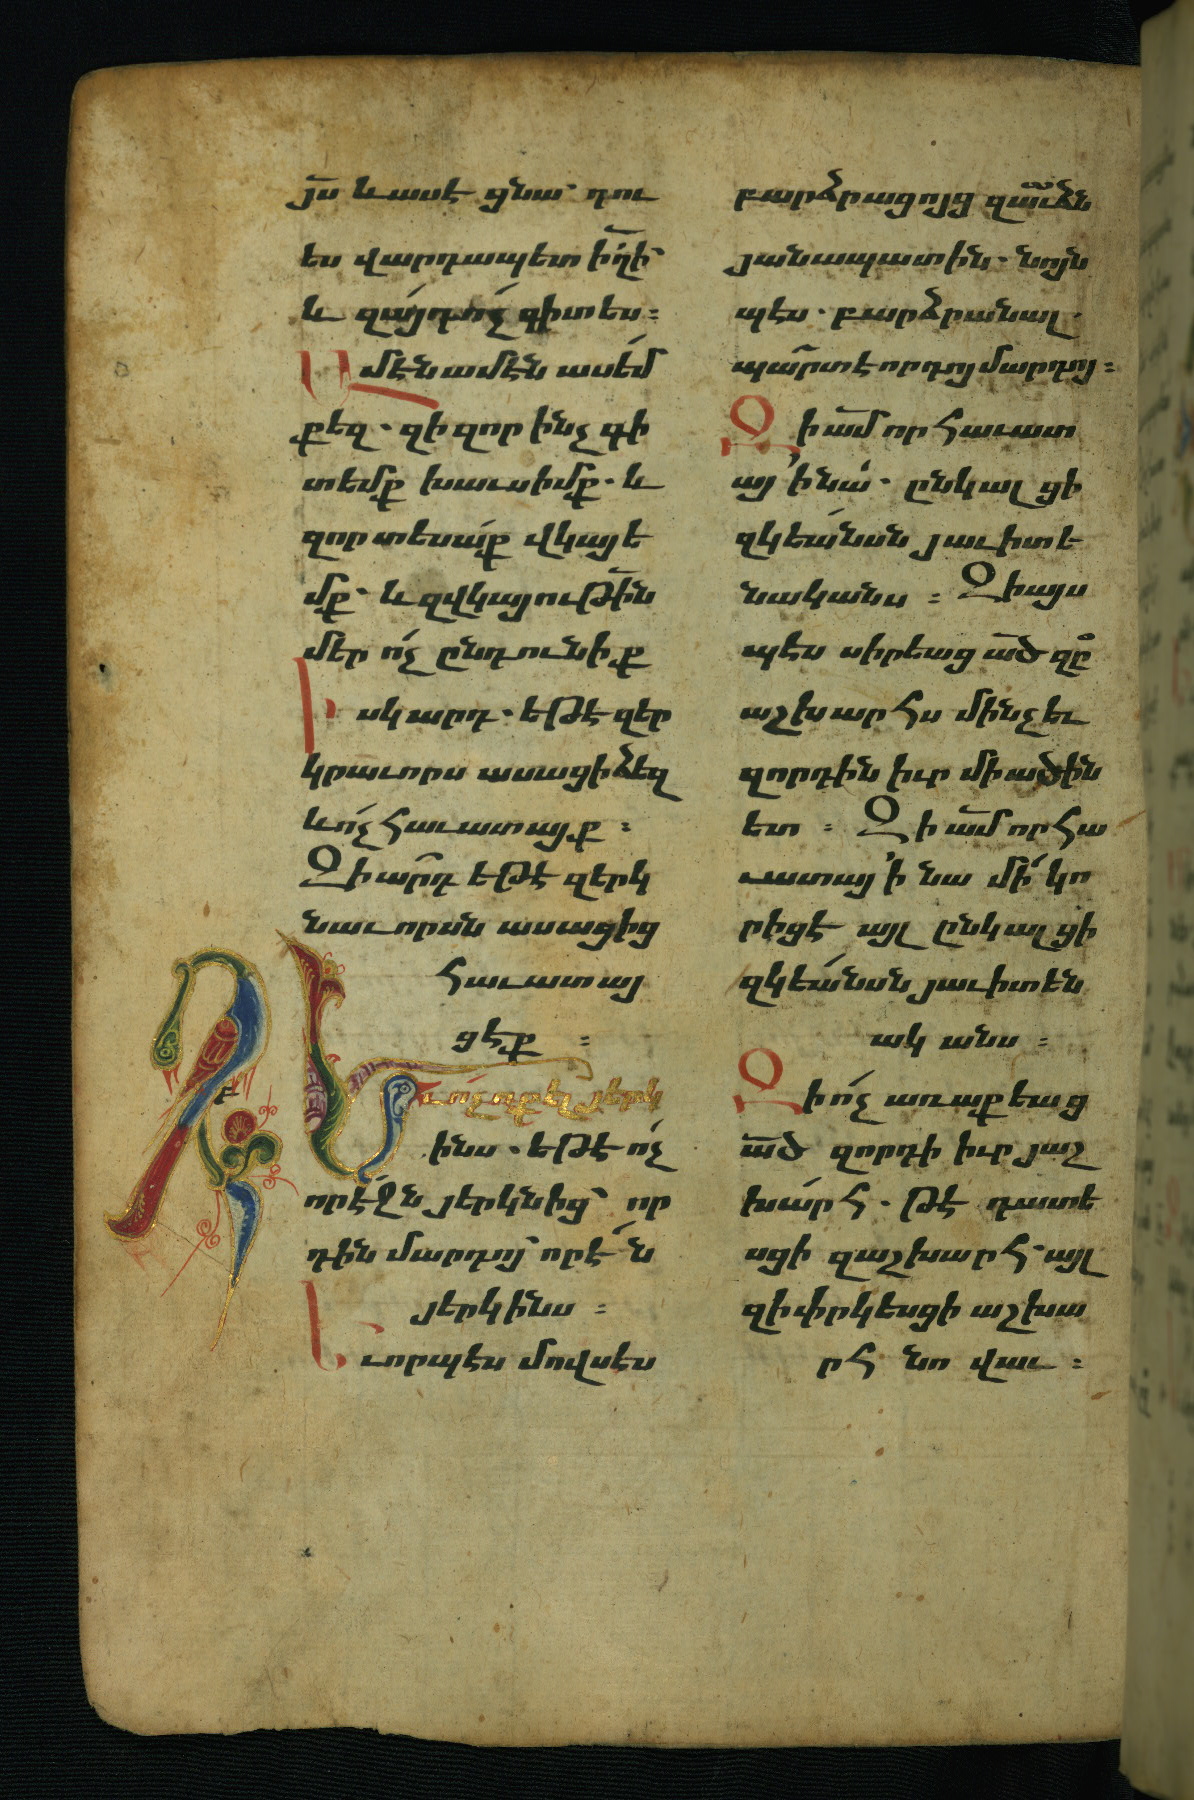 յս և ասէ ցնա՝ դու
ես վարդապետ իղի՝
և զայդ ոչ գիտես։
Ամէն ամէն ասեմ
քեզ. զի զոր ինչ գի
տեմք խաւսիմք. և
զոր տեսաք վկայե
մք. և զվկայութին
մեր ոչ ընդունիք
Իսկ արդ. եթէ զեր
կրաւորս ասացի ձեզ
և ոչ հաւատայք։
Զի արդ եթէ զերկ
նաւորսն ասացից
հաւատայ
ցէք։
Եւ ոչ ոք ել յերկ
ինս. եթէ ոչ
որ էջն յերկնից՝ որ
դին մարդոյ՝ որ է ն
յերկինս։
Եւ որպես մովսես
բարձրացոյց զաւձն
յանապատին. նոյն
պես. բարձրանալ.
պարտ է որդոյ մարդոյ։
Զի ամ որ հաւատ
այ ի նա. ընկալցի
զկեանսն յաւիտե
նականս։ Զի այս
պես սիրեաց ած զը
աշխարհս մինչեւ
զորդին իւր միածին
ետ։ Զի ամ որ հա
ւատայ ի նա մի կո
րիցէ այլ ընկալցի
զկեանսն յաւիտեն
ականս։
Զի ոչ առաքեաց
ած զորդի իւր յաշ
խարհ. թէ դատե
սցի զաշխարհ՝ այլ
զի փրկեսցի աշխա
րհ նովաւ։